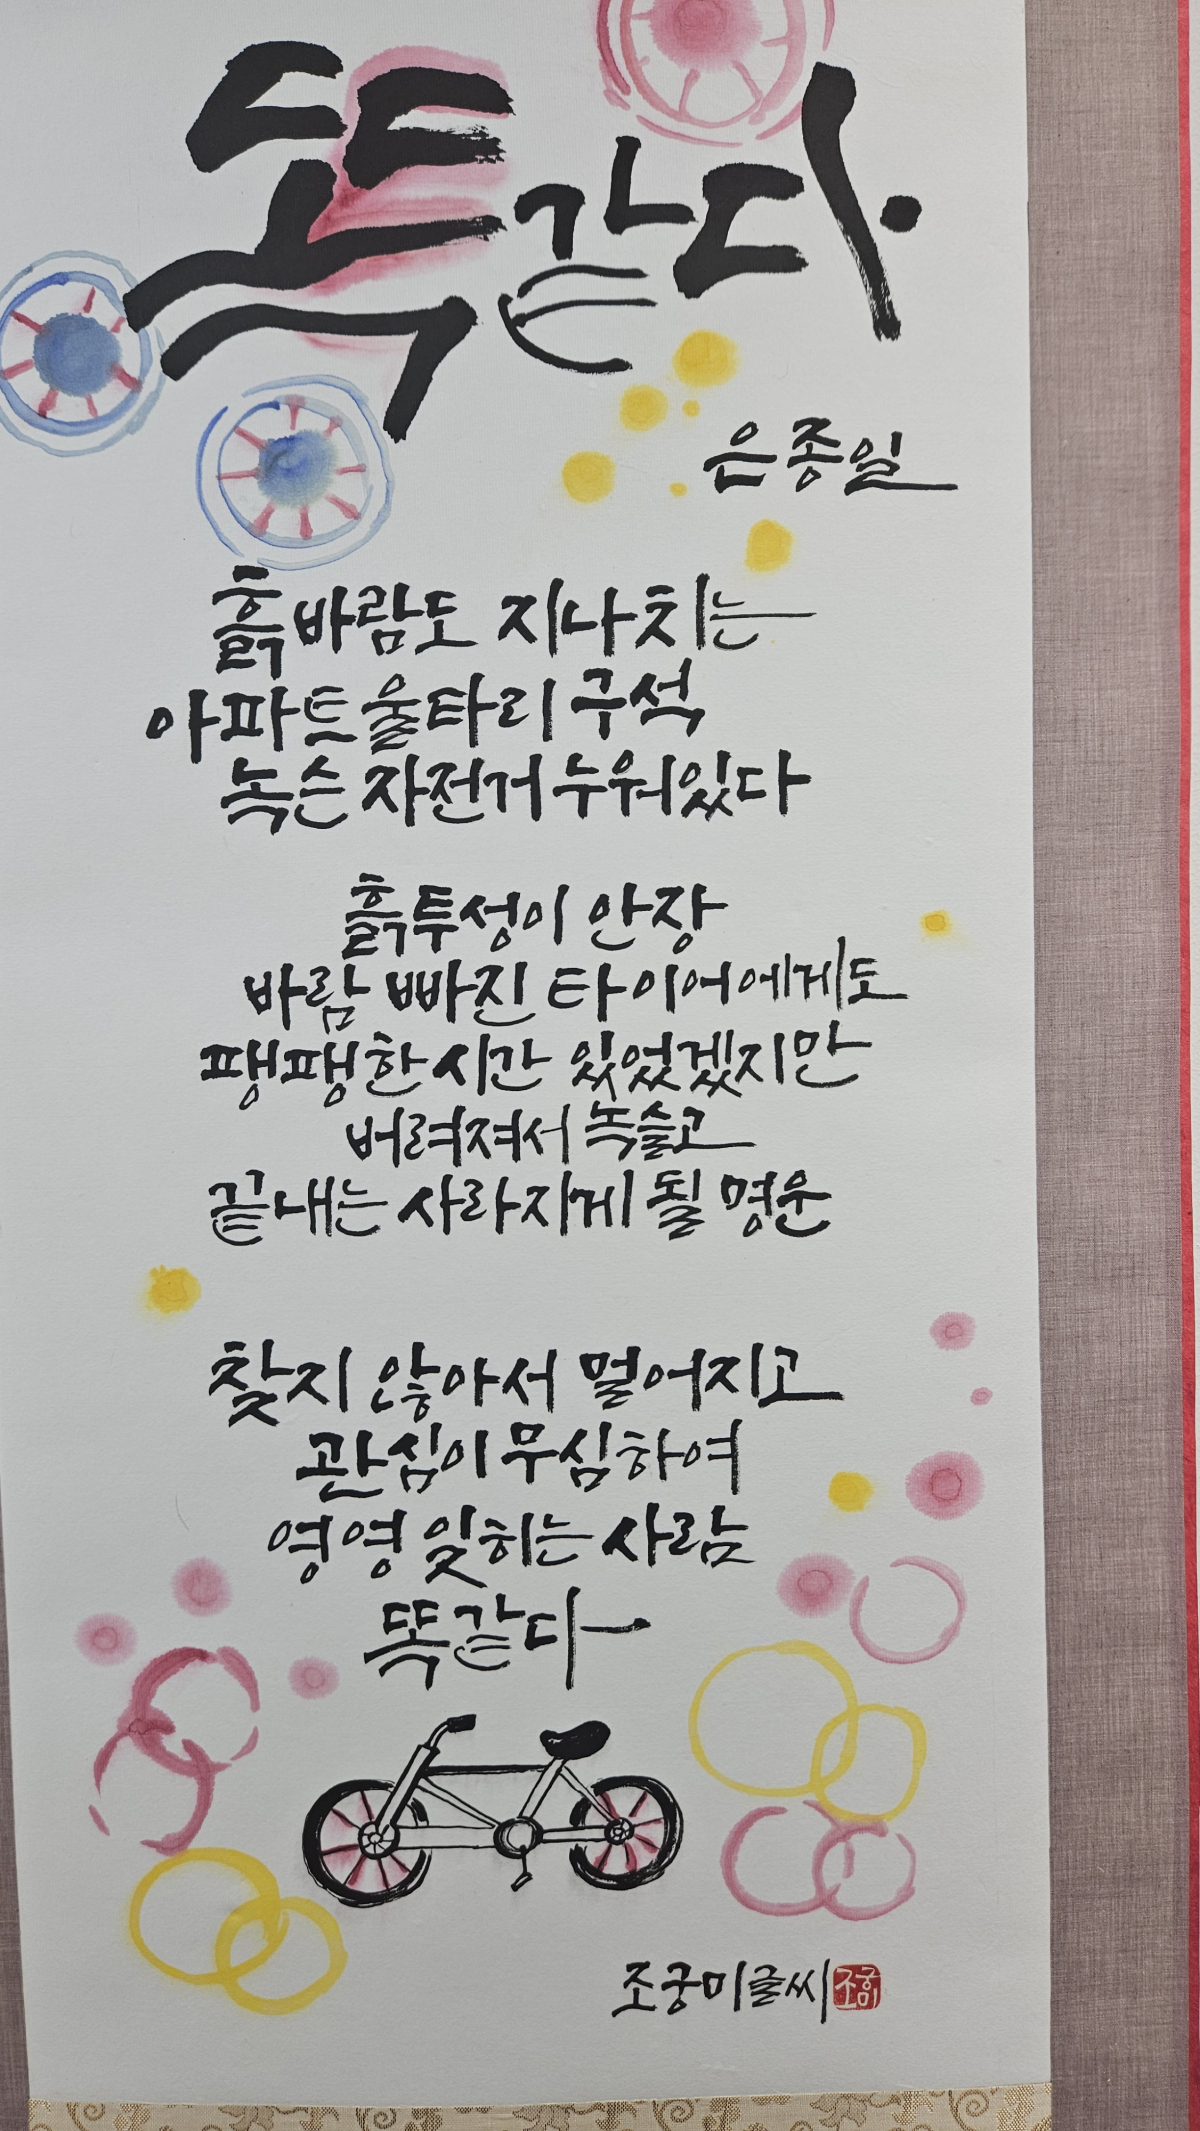 똑같다.
은종일
흙바람도 지나치는
아파트 울타리 구석
녹슨 자전거 누워있다
흙투성이 안장
바람 빠진 타이어에게도
팽팽한 시간 있었겠지만
버려져서 녹슬고
끝내는 사라지게 될 명운
찾지 않아서 멀어지고
관심이 무심하여
영영 잊히는 사람
똑같다
조궁미글씨